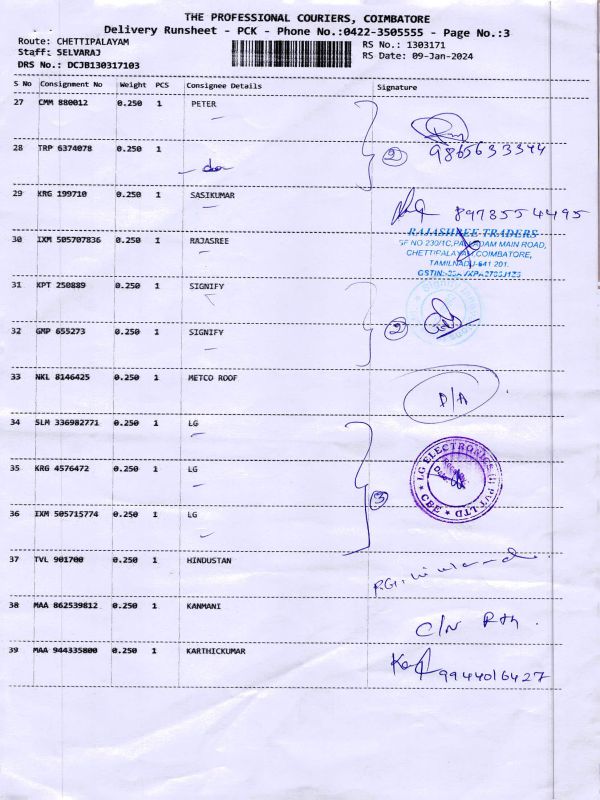 THE PROFESSIONAL COURIERS, COIMBATORE
Delivery Runsheet - PCK - Phone No.:0422-3505555 - Page No.:3
Route: CHETTIPALAYAM
Staff: SELVARAJ
DRS No.: DCJB130317103
RS No.: 1303171
RS Date: 09-Jan-2024
S No Consignment No Weight PCS Consignee Details Signature
27 CMM 880012 0.250 1 PETER
28 TRP 6374078 0.250 1
2 9865633344
29 KRG 199710 0.250 1 SASIKUMAR
8973554495
30 IXM 505707836 0.250 1 RAJASREE
RAJASHREE TRADERS
SF NO 230/1C, PALLADAM MAIN ROAD,
CHETTIPALAYAM, COIMBATORE,
TAMILNADU-641 201.
31 KPT 250889 0.250 1 SIGNIFY
32 GMP 655273 0.250 1 SIGNIFY
2
33 NKL 8146425 0.250 1 METCO ROOF
D/A
34 SLM 336982771 0.250 1 LG
35 KRG 4576472 0.250 1 LG
3
LG ELECTRONICS (I) PVT LTD
CBE
36 IXM 505715774 0.250 1 LG
37 TVL 901700 0.250 1 HINDUSTAN
38 MAA 862539812 0.250 1 KANMANI
C/N Rtn.
39 MAA 944335800 0.250 1 KARTHICKUMAR
9944016427